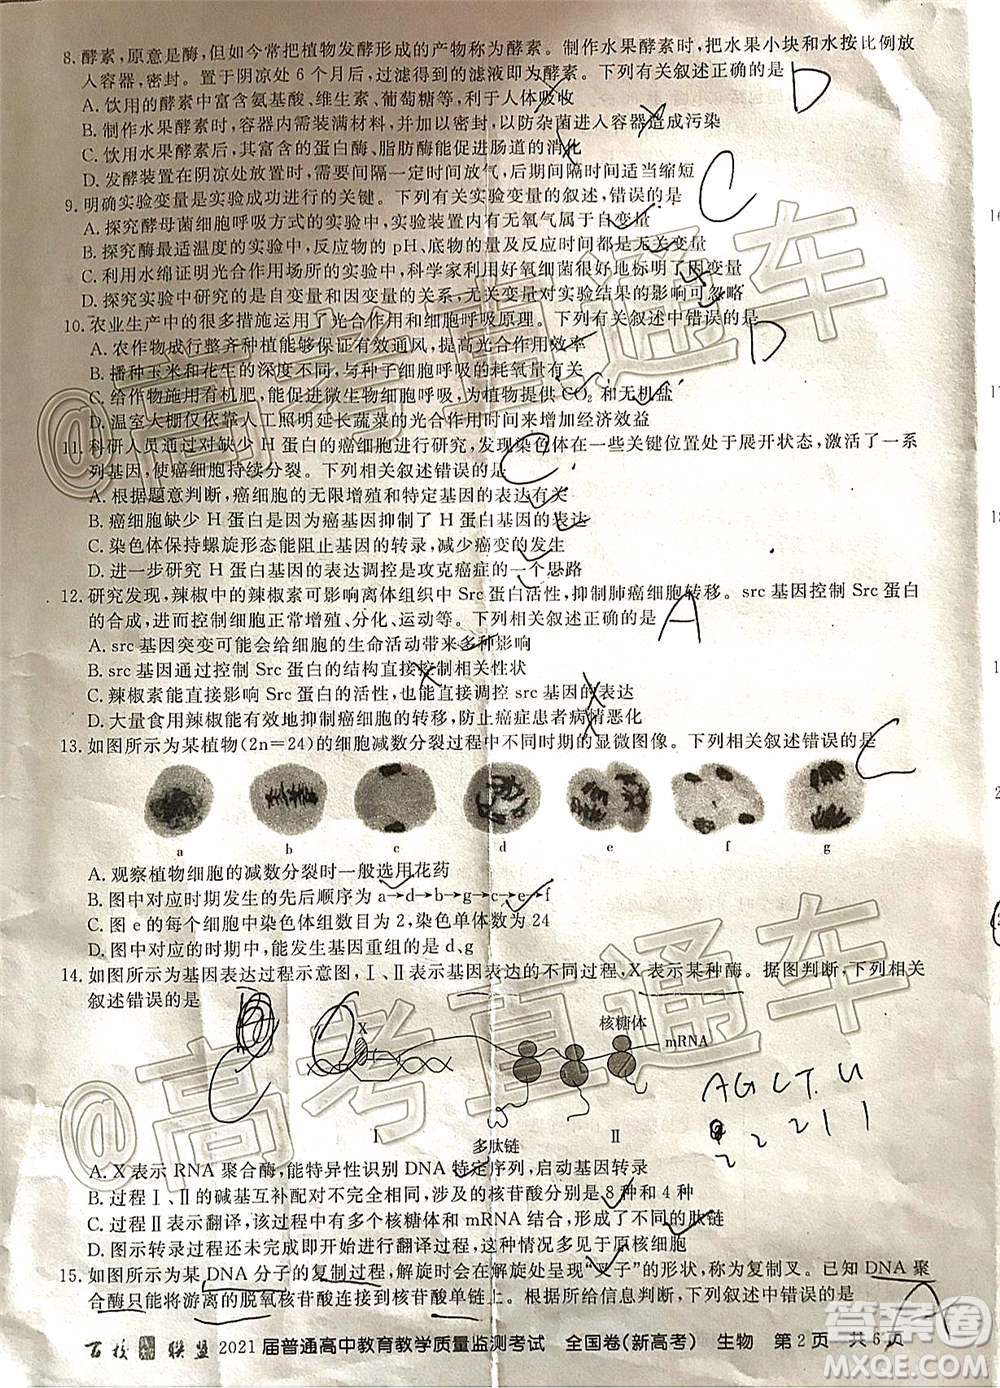 8. 酵素,原意是酶,但如今常把植物发酵形成的产物称为酵素。制作水果酵素时,把水果小块和水按比例放
入容器,密封。置于阴凉处 6 个月后,过滤得到的滤液即为酵素。下列有关叙述正确的是
D
A. 饮用的酵素中富含氨基酸、维生素、葡萄糖等,利于人体吸收
B. 制作水果酵素时,容器内需装满材料,并加以密封,以防杂菌进入容器造成污染
C. 饮用水果酵素后,其富含的蛋白酶、脂肪酶能促进肠道的消化
D. 发酵装置在阴凉处放置时,需要间隔一定时间放气,后期间隔时间适当缩短
9. 明确实验变量是实验成功进行的关键。下列有关实验变量的叙述,错误的是
C
A. 探究酵母菌细胞呼吸方式的实验中,实验装置内有无氧气属于自变量
B. 探究酶最适温度的实验中,反应物的 pH、底物的量等都是无关变量
C. 利用水绵证明光合作用场所的实验中,科学家利用好氧细菌很好地标明了因变量
D. 探究实验中研究的是自变量和因变量的关系,无关变量对实验结果的影响可忽略
10. 农业生产中的很多措施运用了光合作用和细胞呼吸原理。下列有关叙述中错误的是
D
A. 农作物成行整齐种植能够保证有效通风,提高光合作用
B. 播种玉米和花生的深度不同,与种子细胞呼吸的耗氧量有关
C. 给作物施用有机肥,能促进微生物细胞呼吸,为植物提供 CO2 和无机盐
D. 温室大棚仅依靠人工照明延长蔬菜的光合作用时间来增加经济效益
11. 科研人员通过对缺少 H 蛋白的癌细胞进行研究,发现染色体在一些关键位置处于展开状态,激活了一系
列基因,使癌细胞持续分裂。下列相关叙述错误的是
A. 根据题意判断,癌细胞的无限增殖和特定基因的表达有关
B. 癌细胞缺少 H 蛋白是因为癌基因抑制了 H 蛋白基因的表达
C. 染色体保持螺旋形态,能阻止基因的转录,减少癌变的发生
D. 进一步研究 H 蛋白基因的表达调控是攻克癌症的一个思路
12. 研究发现,辣椒中的辣椒素可影响离体组织中 Src 蛋白活性,抑制肺癌细胞转移。src 基因控制 Src 蛋白
的合成,进而控制细胞的正常增殖、分化、运动等。下列相关叙述正确的是
A
A. src 基因突变可能会给细胞的生命活动带来多种影响
B. src 基因通过控制 Src 蛋白的结构直接控制相关性状
C. 辣椒素能直接影响 Src 蛋白的活性,也能直接调控 src 基因的表达
D. 大量食用辣椒能有效地抑制癌细胞的转移,防止癌症患者病情恶化
13. 如图所示为某植物(2n=24)的细胞减数分裂过程中不同时期的显微图像。下列相关叙述错误的是
C
a b c d e f g
A. 观察植物细胞的减数分裂时一般选用花药
B. 图中对应时期发生的先后顺序为 a→d→b→g→c→e→f
C. 图 e 的每个细胞中染色体组数目为 2,染色单体数为 24
D. 图中对应的时期中,能发生基因重组的是 d、g
14. 如图所示为基因表达过程示意图,Ⅰ、Ⅱ表示基因表达的不同过程,X 表示某种酶。据图判断,下列相关
叙述错误的是
C
X
核糖体
mRNA
AGCT U
2 2 2 1 1
Ⅰ 多肽链 Ⅱ
A. X 表示 RNA 聚合酶,能特异性识别 DNA 特定序列,启动基因转录
B. 过程Ⅰ、Ⅱ的碱基互补配对不完全相同,涉及的核苷酸分别是 8 种和 4 种
C. 过程Ⅱ表示翻译,该过程中有多个核糖体和 mRNA 结合,形成了不同的肽链
D. 图示转录过程还未完成即开始进行翻译过程,该细胞应为原核细胞
15. 如图所示为某 DNA 分子的复制过程,解旋时会在解旋处呈现“叉子”的形状,称为复制叉。已知 DNA 聚
合酶只能将游离的脱氧核苷酸连接到核苷酸单链上。下列相关叙述错误的是
A
百校 联盟 2021 届普通高中教育教学质量监测考试 全国卷(新高考) 生物 第 2 页 共 6 页
@高考直通车
@高考直通车
答案圈